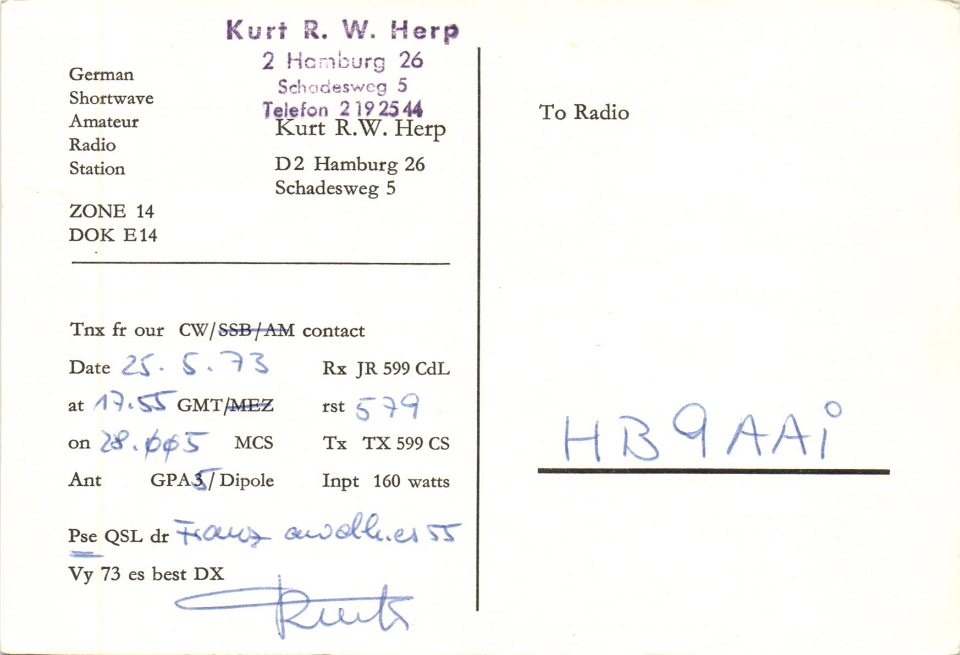 Kurt R. W. Herp
2 Hamburg 26
Schadesweg 5
Telefon 2192544
German
Shortwave
Amateur
Radio
Station
ZONE 14
DOK E14
Kurt R.W. Herp
D2 Hamburg 26
Schadesweg 5
Tnx fr our CW/SSB/AM contact
Date 25.5.73 Rx JR 599 CdL
at 17.55 GMT/MEZ rst 579
on 28.005 MCS Tx TX 599 CS
Ant GPA5/Dipole Inpt 160 watts
Pse QSL dr Franz 55
Vy 73 es best DX
Kurt
To Radio
HB9AAi